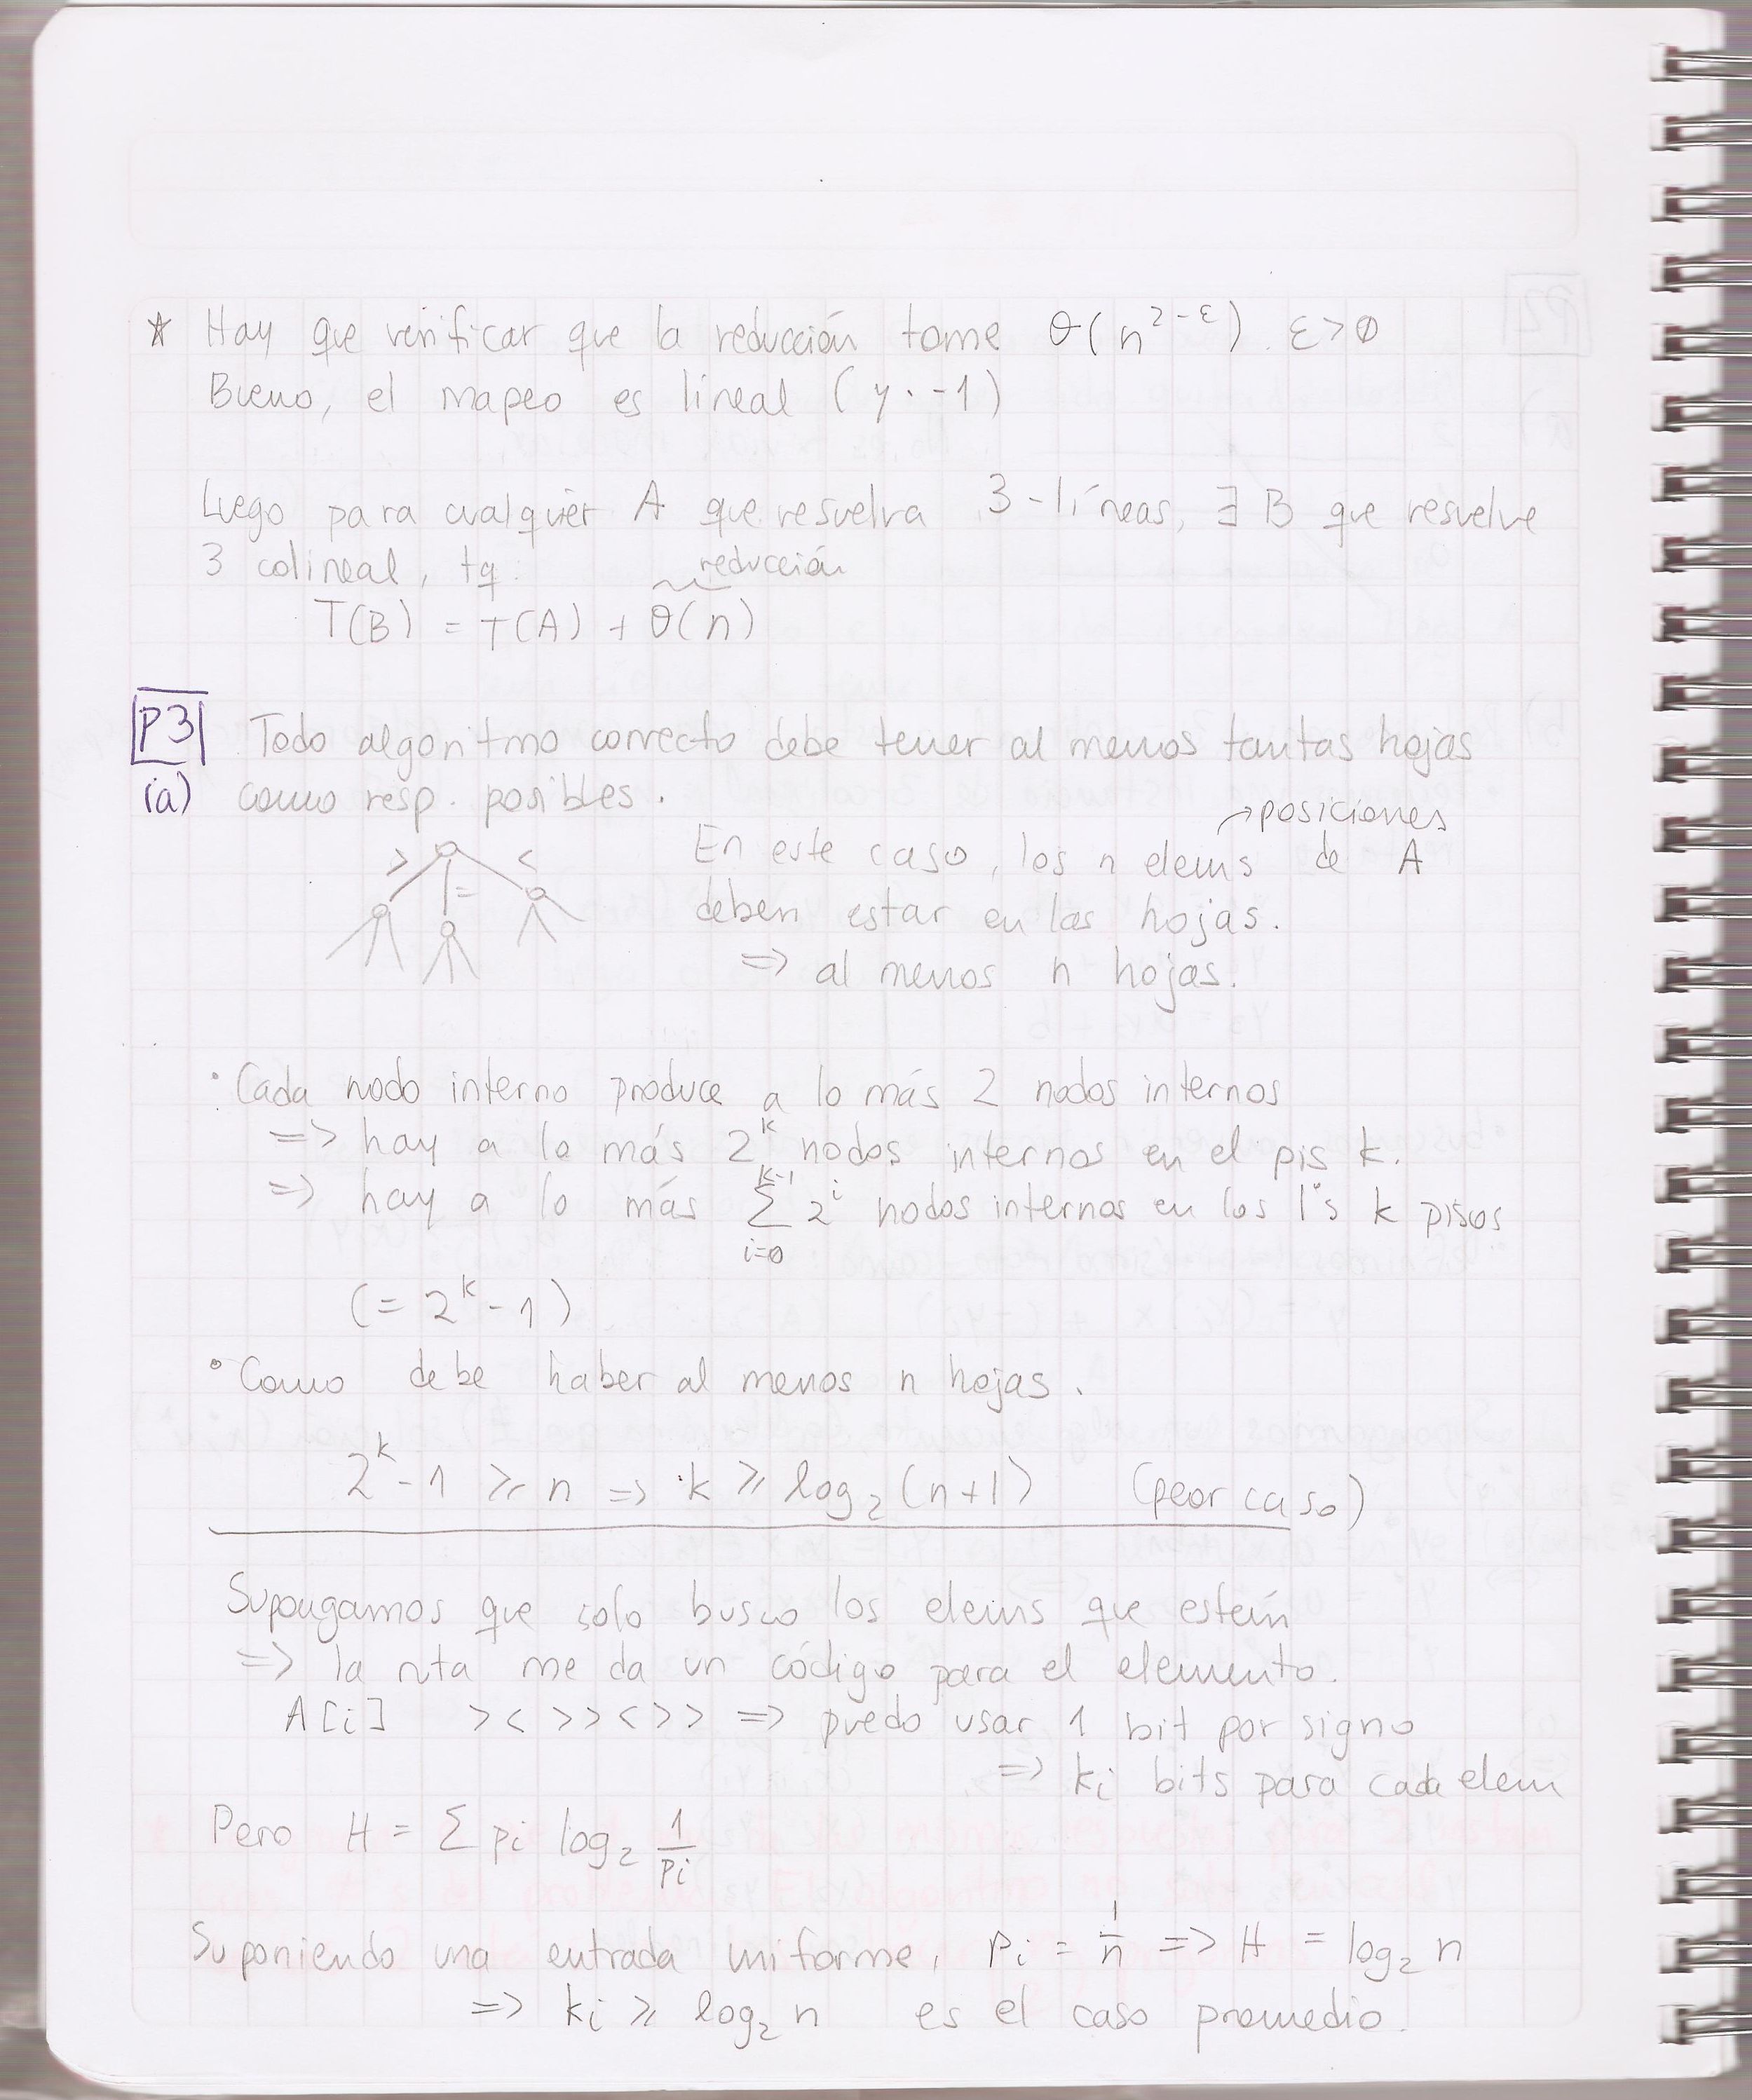 * Hay que verificar que la reducción tome θ(n^{2-ε}). ε>0
Bueno, el mapeo es lineal (y·-1)
Luego para cualquier A que resuelva 3-líneas, ∃ B que resuelve
3 colineal, tq.
reducción
T(B) = T(A) + θ(n)
P3 Todo algoritmo correcto debe tener al menos tantas hojas
(a) como resp. posibles.
> = <
→posiciones
En este caso, los n elems de A
deben estar en las hojas.
=> al menos n hojas.
• Cada nodo interno produce a lo más 2 nodos internos
=> hay a lo más 2^k nodos internos en el pis k.
=> hay a lo más ∑_{i=0}^{k-1} 2^i nodos internos en los 1°s k pisos
(= 2^k - 1)
• Como debe haber al menos n hojas.
2^k - 1 ≥ n => k ≥ log₂(n+1) (peor caso)
Supongamos que solo busco los elems que estén
=> la ruta me da un código para el elemento.
A[i] > < > > < > > => puedo usar 1 bit por signo
=> ki bits para cada elem
Pero H = ∑ pi log₂ 1/pi
Suponiendo una entrada uniforme, pi = 1/n => H = log₂ n
=> ki ≥ log₂ n es el caso promedio.